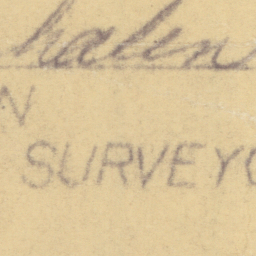 halen
N
SURVEYO